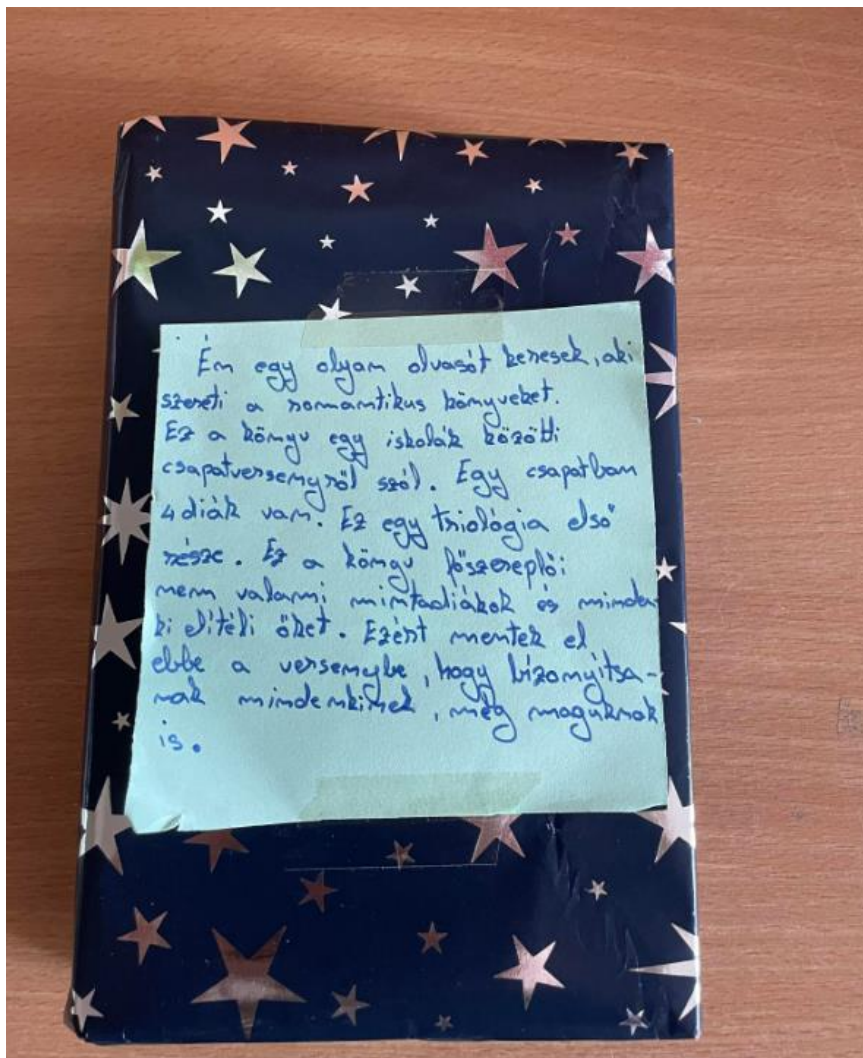 Én egy olyan olvasót keresek, aki
szereti a romantikus könyveket.
Ez a könyv egy iskolák közötti
csapatversenyről szól. Egy csapatban
4 diák van. Ez egy triológia első
része. Ez a könyv főszereplői
nem valami mintadiákok és minden
ki elítéli őket. Ezért mentek el
ebbe a versenybe, hogy bizonyítsa-
nak mindenkinek, még maguknak
is.